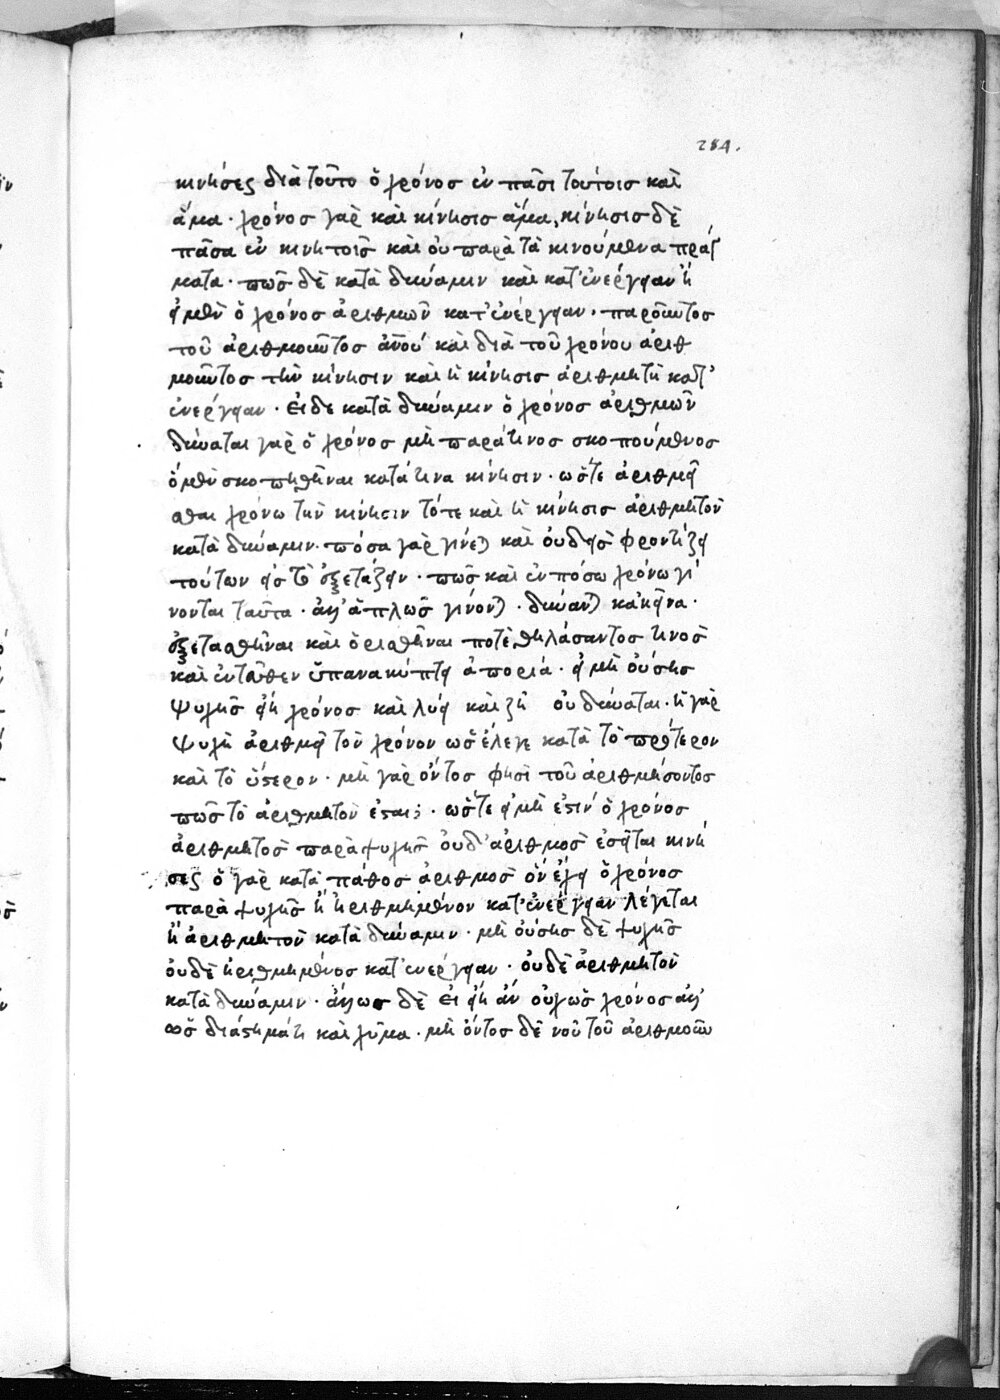 284.
κινήσεις διὰ τοῦτο ὁ χρόνος ἐν πᾶσι τούτοις καὶ
ἅμα · χρόνος γὰρ καὶ κίνησις ἅμα, κίνησις δὲ
πᾶσα ἐν κινητοῖς καὶ οὐ παρὰ τὰ κινούμενα πράγ
ματα · πῶς δὲ κατὰ δύναμιν καὶ κατ' ἐνέργειαν ἢ
εἰ μὲν ὁ χρόνος ἀριθμῶν κατ' ἐνέργειαν · παρόντος
τοῦ ἀριθμοῦντος ἀνου καὶ διὰ τοῦ χρόνου ἀριθ
μοῦντος τὴν κίνησιν καὶ ἡ κίνησις ἀριθμητὴ κατ'
ἐνέργειαν · εἰ δε κατὰ δύναμιν ὁ χρόνος ἀριθμῶν
δύναται γὰρ ὁ χρόνος μὴ παρά τινος σκοπούμενος
ὅμεν σκοπηθῆναι κατά τινα κίνησιν · ὥστε ἀριθμεῖ
σθαι χρόνω τὴν κίνησιν τότε καὶ ἡ κίνησις ἀριθμητὸν
κατὰ δύναμιν · πόσα γὰρ γίνεται καὶ οὐδεὶς φροντίζει
τούτων εἰς τὸ ἐξετάζειν · πῶς καὶ ἐν πόσω χρόνω γί
νονται ταῦτα · ἀλλ' ἁπλῶς γίνονται · δύναται κἀκεῖνα ·
ἐξετασθῆναι καὶ ὁρισθῆναι ποτὲ θηλάσαντος τινὸς
καὶ ἐνταῦθεν ὕπανακύπτει ἀπορία · εἰ μὴ οὔσης
ψυχῆς εἴη χρόνος καὶ λύει καὶ ζῆ οὐ δύναται · ἡ γὰρ
ψυχὴ ἀριθμεῖ τὸν χρόνον ὡς ἔλεγε κατὰ τὸ πρότερον
καὶ τὸ ὕστερον · μὴ γὰρ ὄντος φησὶ τοῦ ἀριθμήσοντος
πῶς τὸ ἀριθμητὸν ἔσται; · ὥστε εἰ μὴ ἐστιν ὁ χρόνος
ἀριθμητὸς παρὰ ψυχῆς οὐδ' ἀριθμὸς ἐσεῖται κινή
σεις ὁ γὰρ κατὰ πάθος ἀριθμὸς ὃν ἔχει ὁ χρόνος
παρὰ ψυχῆς ἢ ἠριθμημένον κατ' ἐνέργειαν λέγεται
ἢ ἀριθμητὸν κατὰ δύναμιν · μὴ οὔσης δὲ ψυχῆς
οὐδὲ ἠριθμημένος κατ' ἐνέργειαν · οὐδὲ ἀριθμητὸν
κατὰ δύναμιν · ἄλλως δὲ εἰ εἴη ἂν οὐχ ὡς χρόνος ἀλλ'
ὡς διάστημάτι καὶ χῦμα · μὴ ὄντος δὲ νοῦ τοῦ ἀριθμοῦν